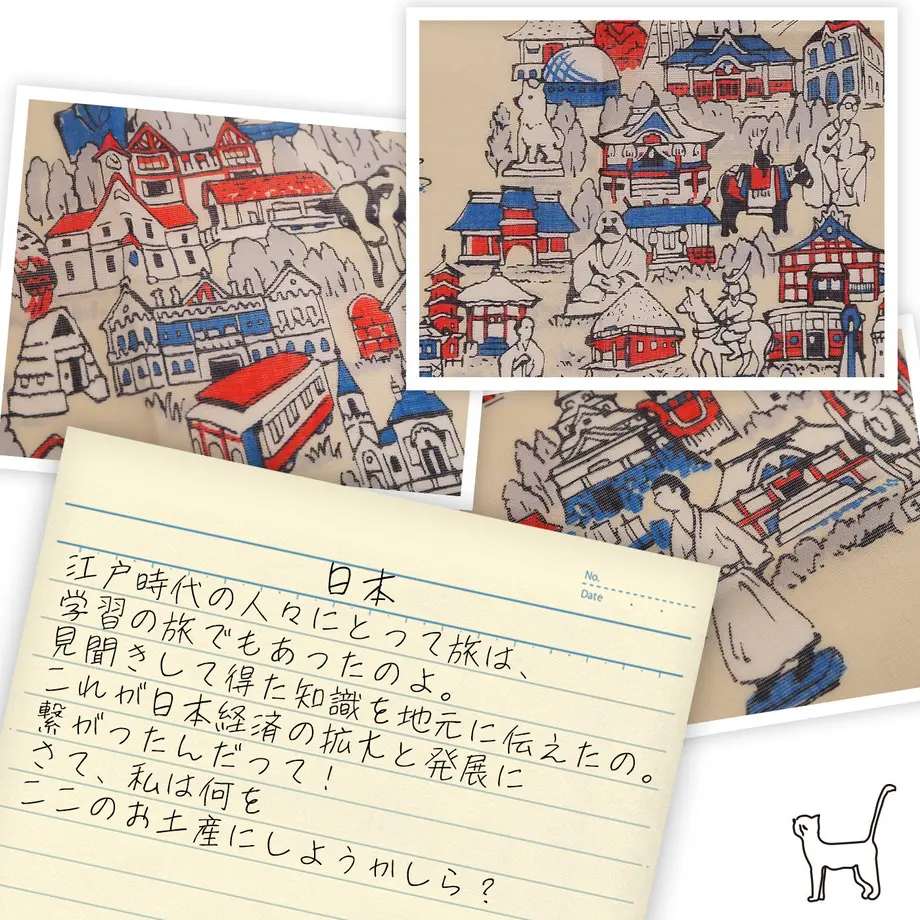 日本
No.
Date
江戸時代の人々にとって旅は、
学習の旅でもあったのよ。
見聞きして得た知識を地元に伝えたの。
これが日本経済の拡大と発展に
繋がったんだって！
さて、私は何を
ここのお土産にしようかしら？